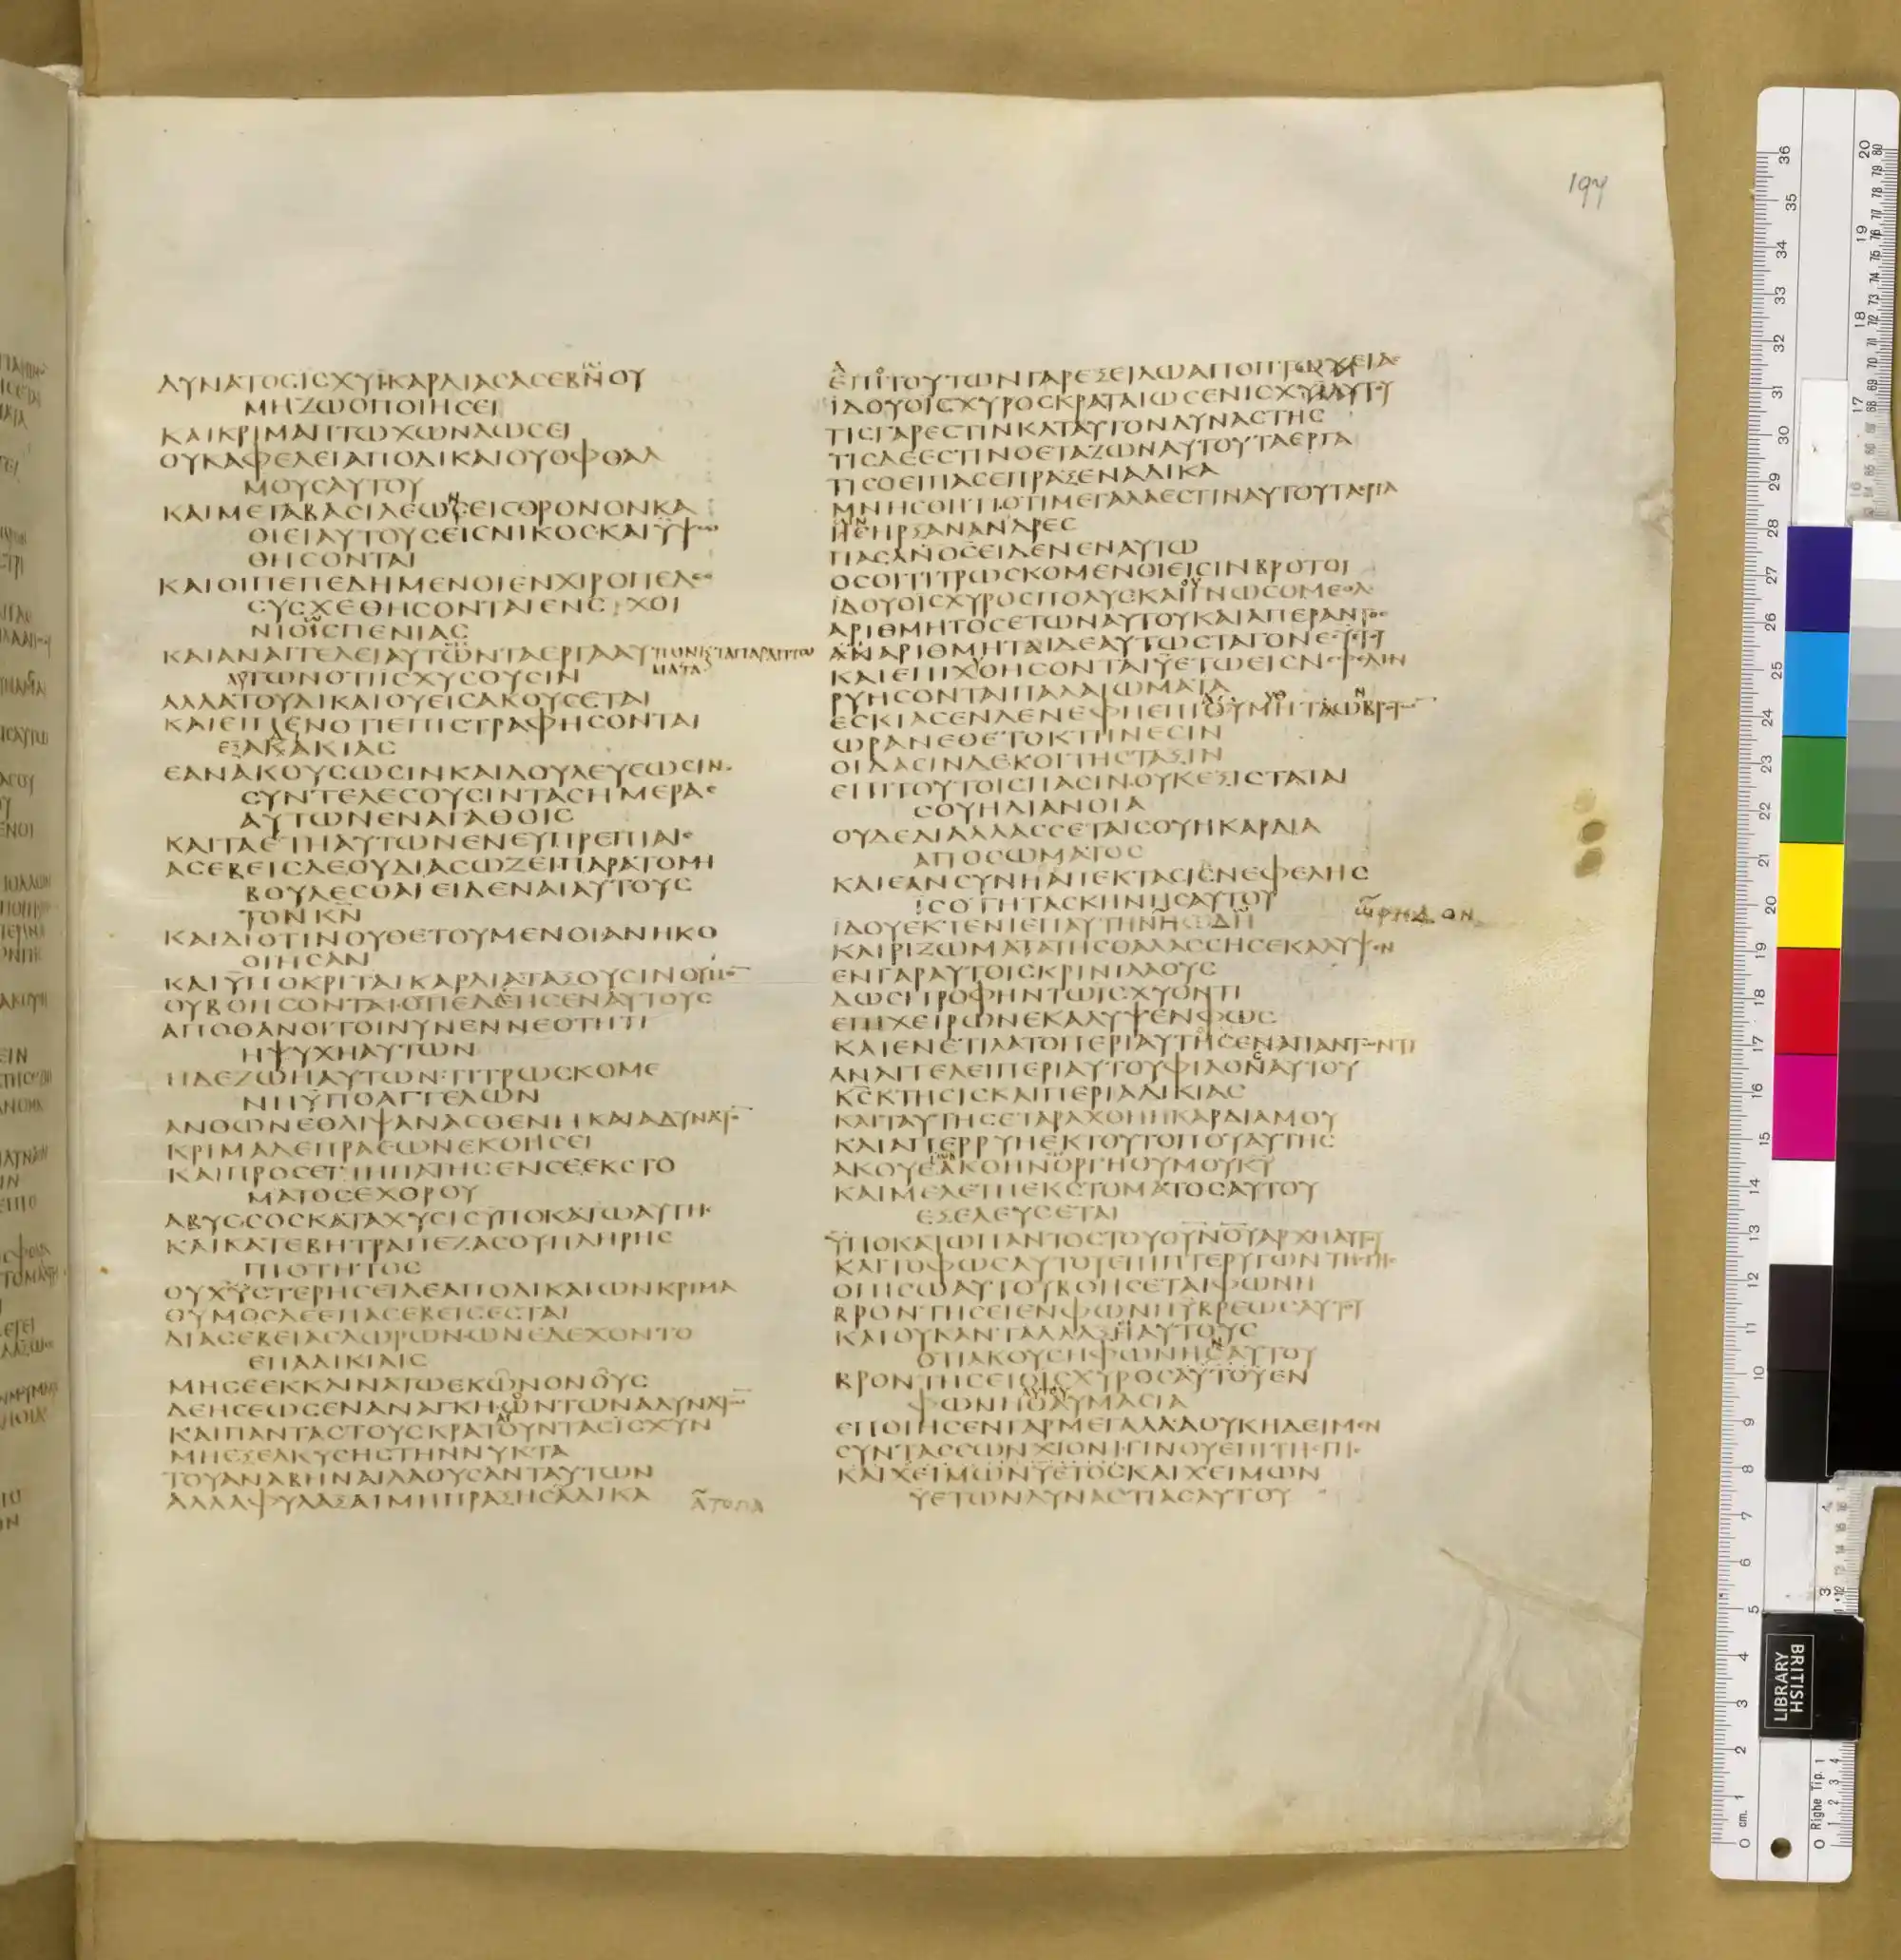 197
ΔΥΝΑΤΟCΙCΧΥΙΚΑΡΔΙΑCΑCΕΒΗΝΟΥ
ΜΗΖΩΟΠΟΙΗCΕΙ
ΚΑΙΚΡΙΜΑΠΤΩΧΩΝΔΩCΕΙ
ΟΥΚΑΦΕΛΕΙΑΠΟΔΙΚΑΙΟΥΟΦΘΑΛ
ΜΟΥCΑΥΤΟΥ
ΚΑΙΜΕΤΑΒΑCΙΛΕΩΝCΕΙCΘΡΟΝΟΝΚΑ
ΘΙΕΙΑΥΤΟΥCΕΙCΝΙΚΟCΚΑΙΫΨΩ
ΘΗCΟΝΤΑΙ
ΚΑΙΟΙΠΕΠΕΔΗΜΕΝΟΙΕΝΧΙΡΟΠΕΔΕC
CΥCΧΕΘΗCΟΝΤΑΙΕΝCΧΟΙ
ΝΙΟΙCΠΕΝΙΑC
ΚΑΙΑΝΑΓΓΕΛΕΙΑΥΤΩΝΤΑΕΡΓΑΑΥ
ΤΩΝΟΤΙΙCΧΥCΟΥCΙΝ
ΑΛΛΑΤΟΥΔΙΚΑΙΟΥΕΙCΑΚΟΥCΕΤΑΙ
ΚΑΙΕΙΠΕΝΟΤΙΕΠΙCΤΡΑΦΗCΟΝΤΑΙ
ΕΞΑΔΙΚΙΑC
ΕΑΝΑΚΟΥCΩCΙΝΚΑΙΔΟΥΛΕΥCΩCΙΝ
CΥΝΤΕΛΕCΟΥCΙΝΤΑCΗΜΕΡΑC
ΑΥΤΩΝΕΝΑΓΑΘΟΙC
ΚΑΙΤΑΕΤΗΑΥΤΩΝΕΝΕΥΠΡΕΠΙΑΙC
ΑCΕΒΕΙCΔΕΟΥΔΙΑCΩΖΕΙΠΑΡΑΤΟΜΗ
ΒΟΥΛΕCΘΑΙΕΙΔΕΝΑΙΑΥΤΟΥC
ΤΟΝΚΝ
ΚΑΙΔΙΟΤΙΝΟΥΘΕΤΟΥΜΕΝΟΙΑΝΗΚΟ
ΟΙΗCΑΝ
ΚΑΙΫΠΟΚΡΙΤΑΙΚΑΡΔΙΑΤΑΞΟΥCΙΝΘΥΜΟΝ
ΟΥΒΟΗCΟΝΤΑΙΟΤΙΕΔΗCΕΝΑΥΤΟΥC
ΑΠΟΘΑΝΟΙΤΟΙΝΥΝΕΝΝΕΟΤΗΤΙ
ΗΨΥΧΗΑΥΤΩΝ
ΗΔΕΖΩΗΑΥΤΩΝΤΙΤΡΩCΚΟΜΕ
ΝΗΫΠΟΑΓΓΕΛΩΝ
ΑΝΘΩΝΕΘΛΙΨΑΝΑCΘΕΝΗΚΑΙΑΔΥΝΑΤΟΝ
ΚΡΙΜΑΔΕΠΡΑΕΩΝΕΚΘΗCΕΙ
ΚΑΙΠΡΟCΕΤΙΗΠΑΤΗCΕΝCΕΕΚCΤΟ
ΜΑΤΟCΕΧΘΡΟΥ
ΑΒΥCCΟCΚΑΤΑΧΥCΙCΥΠΟΚΑΤΩΑΥΤΗC
ΚΑΙΚΑΤΕΒΗΤΡΑΠΕΖΑCΟΥΠΛΗΡΗC
ΠΙΟΤΗΤΟC
ΟΥΧΫCΤΕΡΗCΕΙΔΕΑΠΟΔΙΚΑΙΩΝΚΡΙΜΑ
ΘΥΜΟCΔΕΕΠΑCΕΒΕΙCΕCΤΑΙ
ΔΙΑCΕΒΕΙΑCΔΩΡΩΝΩΝΕΔΕΧΟΝΤΟ
ΕΠΑΔΙΚΙΑΙC
ΜΗCΕΕΚΚΛΙΝΑΤΩΕΚΩΝΟΝΟΥC
ΔΕΗCΕΩCΕΝΑΝΑΓΚΗΟΝΤΩΝΑΔΥΝΑΤΩΝ
ΚΑΙΠΑΝΤΑCΤΟΥCΚΡΑΤΟΥΝΤΑCΙCΧΥΝ
ΜΗΕΞΕΛΚΥCΗCΤΗΝΝΥΚΤΑ
ΤΟΥΑΝΑΒΗΝΑΙΛΑΟΥCΑΝΤΑΥΤΩΝ
ΑΛΛΑΦΥΛΑΞΑΙΜΗΠΡΑΞΗCΑΔΙΚΑ
ΑΤΟΠΑ
ΕΠΙΤΟΥΤΩΝΓΑΡΕΞΕΙΛΩΑΠΟΠΤΩΧΕΙΑC
ΪΔΟΥΟΙCΧΥΡΟCΚΡΑΤΑΙΩCΕΝΙCΧΥΙΑΥΤΟΥ
ΤΙCΓΑΡΕCΤΙΝΚΑΤΑΥΤΟΝΔΥΝΑCΤΗC
ΤΙCΔΕΕCΤΙΝΟΕΤΑΖΩΝΑΥΤΟΥΤΑΕΡΓΑ
ΤΙCΟΕΙΠΑCΕΠΡΑΞΕΝΑΔΙΚΑ
ΜΝΗCΘΗΤΙΟΤΙΜΕΓΑΛΑΕCΤΙΝΑΥΤΟΥΤΑΕΡΓΑ
ΗΡΞΑΝΑΝΔΡΕC
ΠΑCΑΝΟCΕΙΔΕΝΕΝΑΥΤΩ
ΟCΟΙΤΙΤΡΩCΚΟΜΕΝΟΙΕΙCΙΝΒΡΟΤΟΙ
ΪΔΟΥΟΙCΧΥΡΟCΠΟΛΥCΚΑΙΓΝΩCΟΜΕΘΑ
ΑΡΙΘΜΗΤΟCΕΤΩΝΑΥΤΟΥΚΑΙΑΠΕΡΑΝΤΟC
ΑΝΑΡΙΘΜΗΤΑΙΔΕΑΥΤΩCΤΑΓΟΝΕCΥΕΤΟΥ
ΚΑΙΕΠΙΧΘΗCΟΝΤΑΙΫΕΤΩΕΙCΝΕΦΕΛΗΝ
ΡΥΗCΟΝΤΑΙΠΑΛΑΙΩΜΑΤΑ
ΕCΚΙΑCΕΝΔΕΝΕΦΗΕΠΙΟΥΜΗΤΑΩΝΒΡΟΤΩΝ
ΩΡΑΝΕΘΕΤΟΚΤΗΝΕCΙΝ
ΟΙΔΑCΙΝΔΕΚΟΙΤΗCΤΑΞΙΝ
ΕΠΙΤΟΥΤΟΙCΠΑCΙΝΟΥΚΕΞΙCΤΑΤΑΙ
CΟΥΗΔΙΑΝΟΙΑ
ΟΥΔΕΔΙΑΛΛΑCCΕΤΑΙCΟΥΗΚΑΡΔΙΑ
ΑΠΟCΩΜΑΤΟC
ΚΑΙΕΑΝCΥΝΗΑΠΕΚΤΑCΙCΝΕΦΕΛΗC
ΙCΟΤΗΤΑCΚΗΝΗCΑΥΤΟΥ
ΪΔΟΥΕΚΤΕΝΙΕΠΑΥΤΗΝΗΩΔΗ
ΚΑΙΡΙΖΩΜΑΤΑΤΗCΘΑΛΑCCΗCΕΚΑΛΥΨΕΝ
ΕΝΓΑΡΑΥΤΟΙCΚΡΙΝΙΛΑΟΥC
ΔΩCΙΤΡΟΦΗΝΤΩΙCΧΥΟΝΤΙ
ΕΠΙΧΕΙΡΩΝΕΚΑΛΥΨΕΝΦΩC
ΚΑΙΕΝΕΤΙΛΑΤΟΠΕΡΙΑΥΤΗCΕΝΑΠΑΝΤΩΝΤΙ
ΑΝΑΓΓΕΛΕΙΠΕΡΙΑΥΤΟΥΦΙΛΟΝΑΥΤΟΥ
ΚCΚΤΗCΙCΚΑΙΠΕΡΙΑΔΙΚΙΑC
ΚΑΙΤΑΥΤΗCΕΤΑΡΑΧΘΗΗΚΑΡΔΙΑΜΟΥ
ΚΑΙΑΠΕΡΡΥΗΕΚΤΟΥΤΟΠΟΥΑΥΤΗC
ΑΚΟΥΕΑΚΟΗΝΟΡΓΗΘΥΜΟΥΚΥ
ΚΑΙΜΕΛΕΤΗΕΚCΤΟΜΑΤΟCΑΥΤΟΥ
ΕΞΕΛΕΥCΕΤΑΙ
ΫΠΟΚΑΤΩΠΑΝΤΟCΤΟΥΟΥΝΟΥΑΡΧΗΑΥΤΟΥ
ΚΑΙΤΟΦΩCΑΥΤΟΥΕΠΙΠΤΕΡΥΓΩΝΤΗCΓΗC
ΟΠΙCΩΑΥΤΟΥΒΟΗCΕΤΑΙΦΩΝΗ
ΒΡΟΝΤΗCΕΙΕΝΦΩΝΗΫΒΡΕΩCΑΥΤΟΥ
ΚΑΙΟΥΚΑΝΤΑΛΛΑΞΗΑΥΤΟΥC
ΟΤΙΑΚΟΥCΗΦΩΝΗCΑΥΤΟΥ
ΒΡΟΝΤΗCΕΙΟΙCΧΥΡΟCΑΥΤΟΥΕΝ
ΦΩΝΗΘΑΥΜΑCΙΑ
ΕΠΟΙΗCΕΝΓΑΡΜΕΓΑΛΑΑΟΥΚΗΔΕΙΜΕΝ
CΥΝΤΑCCΩΝΧΙΟΝΙΓΙΝΟΥΕΠΙΤΗCΓΗC
ΚΑΙΧΕΙΜΩΝΫΕΤΟCΚΑΙΧΕΙΜΩΝ
ΫΕΤΩΝΔΥΝΑCΤΙΑCΑΥΤΟΥ
BRITISH
LIBRARY